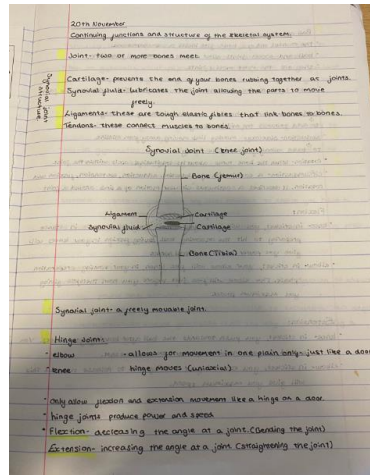 20th November
Continuing functions and structure of the skeletal system.
Joint- two or more bones meet.
Synovial joint structure
Cartilage- prevents the end of your bones rubbing together at joints.
Synovial fluid- lubricates the joint allowing the parts to move
freely.
Ligaments- these are tough elastic fibres that link bones to bones.
Tendons- these connect muscles to bones.
Synovial Joint (knee joint)
Bone (femur)
Ligament
Cartilage
Synovial fluid
Cartilage
Bone (Tibia)
Synovial joint- a freely movable joint.
Hinge Joint:
• elbow - allows for movement in one plain only- just like a door
• knee hinge moves (uniaxial)
• only allow flexion and extension movement like a hinge on a door
• hinge joints produce power and speed
• Flection- decreasing the angle at a joint. (Bending the joint)
Extension- increasing the angle at a joint (straightening the joint)